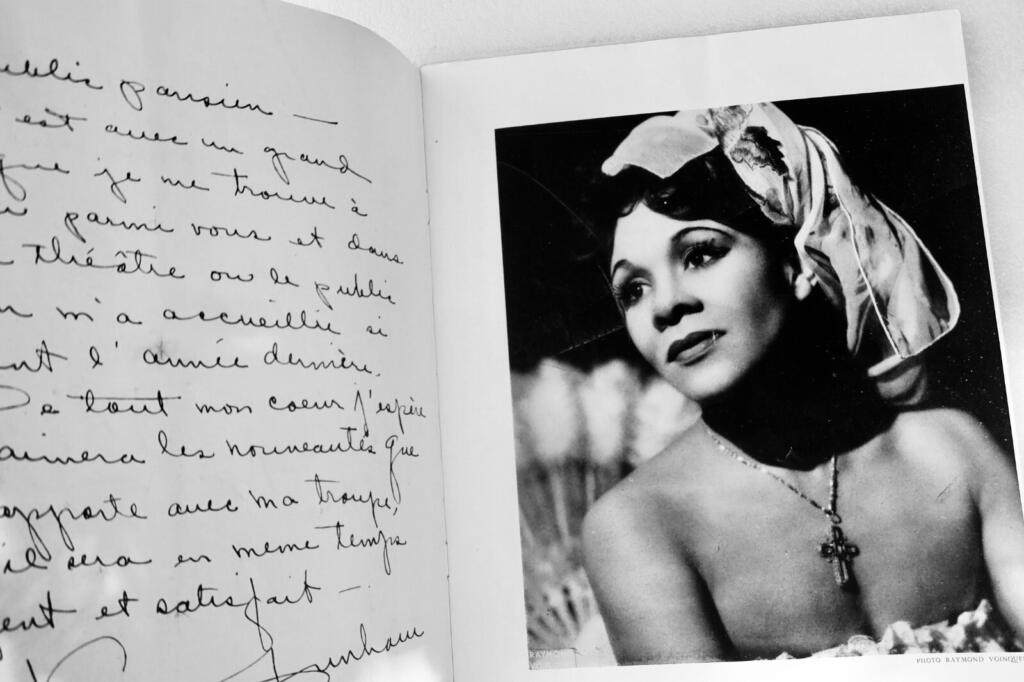 public parisien —
est avec un grand
que je me trouve à
parmi vous et dans
théâtre ou le public
m'a accueillie si
l'année dernière.
De tout mon coeur j'espère
aimera les nouveautés que
apporte avec ma troupe,
il sera en meme temps
et satisfait —
K Dunham
RAYMOND
PHOTO RAYMOND VOINQUE